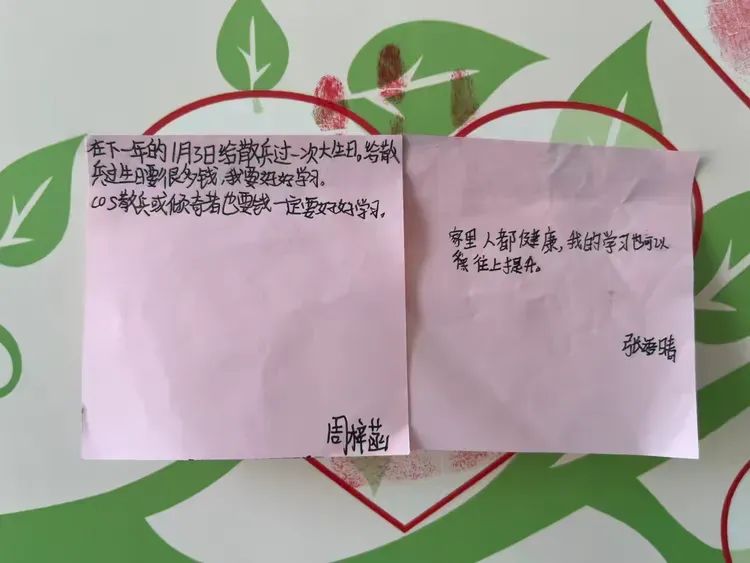 在下一年的1月3日给散兵过一次大生日。给散
兵过生日要很多钱,我要好好学习。
COS散兵或倾奇者也要钱一定要好好学习。
周梓菡
家里人都健康,我的学习也可以
往上提升。
张 晴